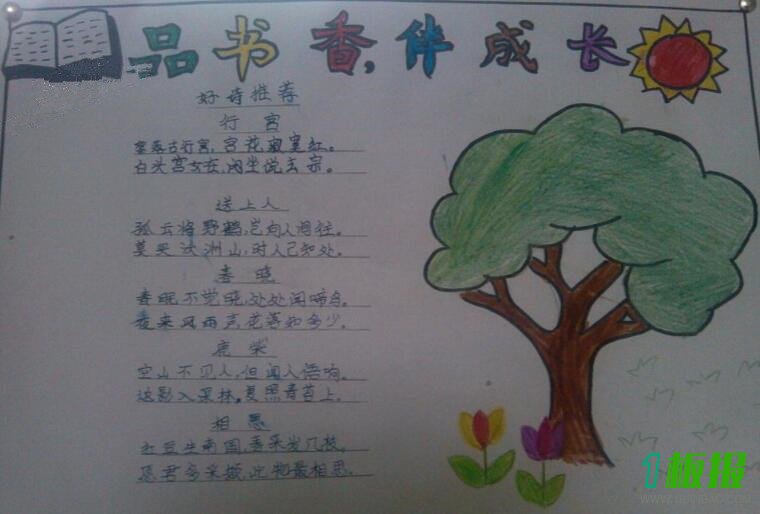 品书香,伴成长
好诗推荐
行宫
寥落古行宫,宫花寂寞红。
白头宫女在,闲坐说玄宗。
送上人
孤云将野鹤,岂向人间住。
莫买沃洲山,时人已知处。
春晓
春眠不觉晓,处处闻啼鸟。
夜来风雨声,花落知多少。
鹿柴
空山不见人,但闻人语响。
返影入深林,复照青苔上。
相思
红豆生南国,春来发几枝。
愿君多采撷,此物最相思。
1板报